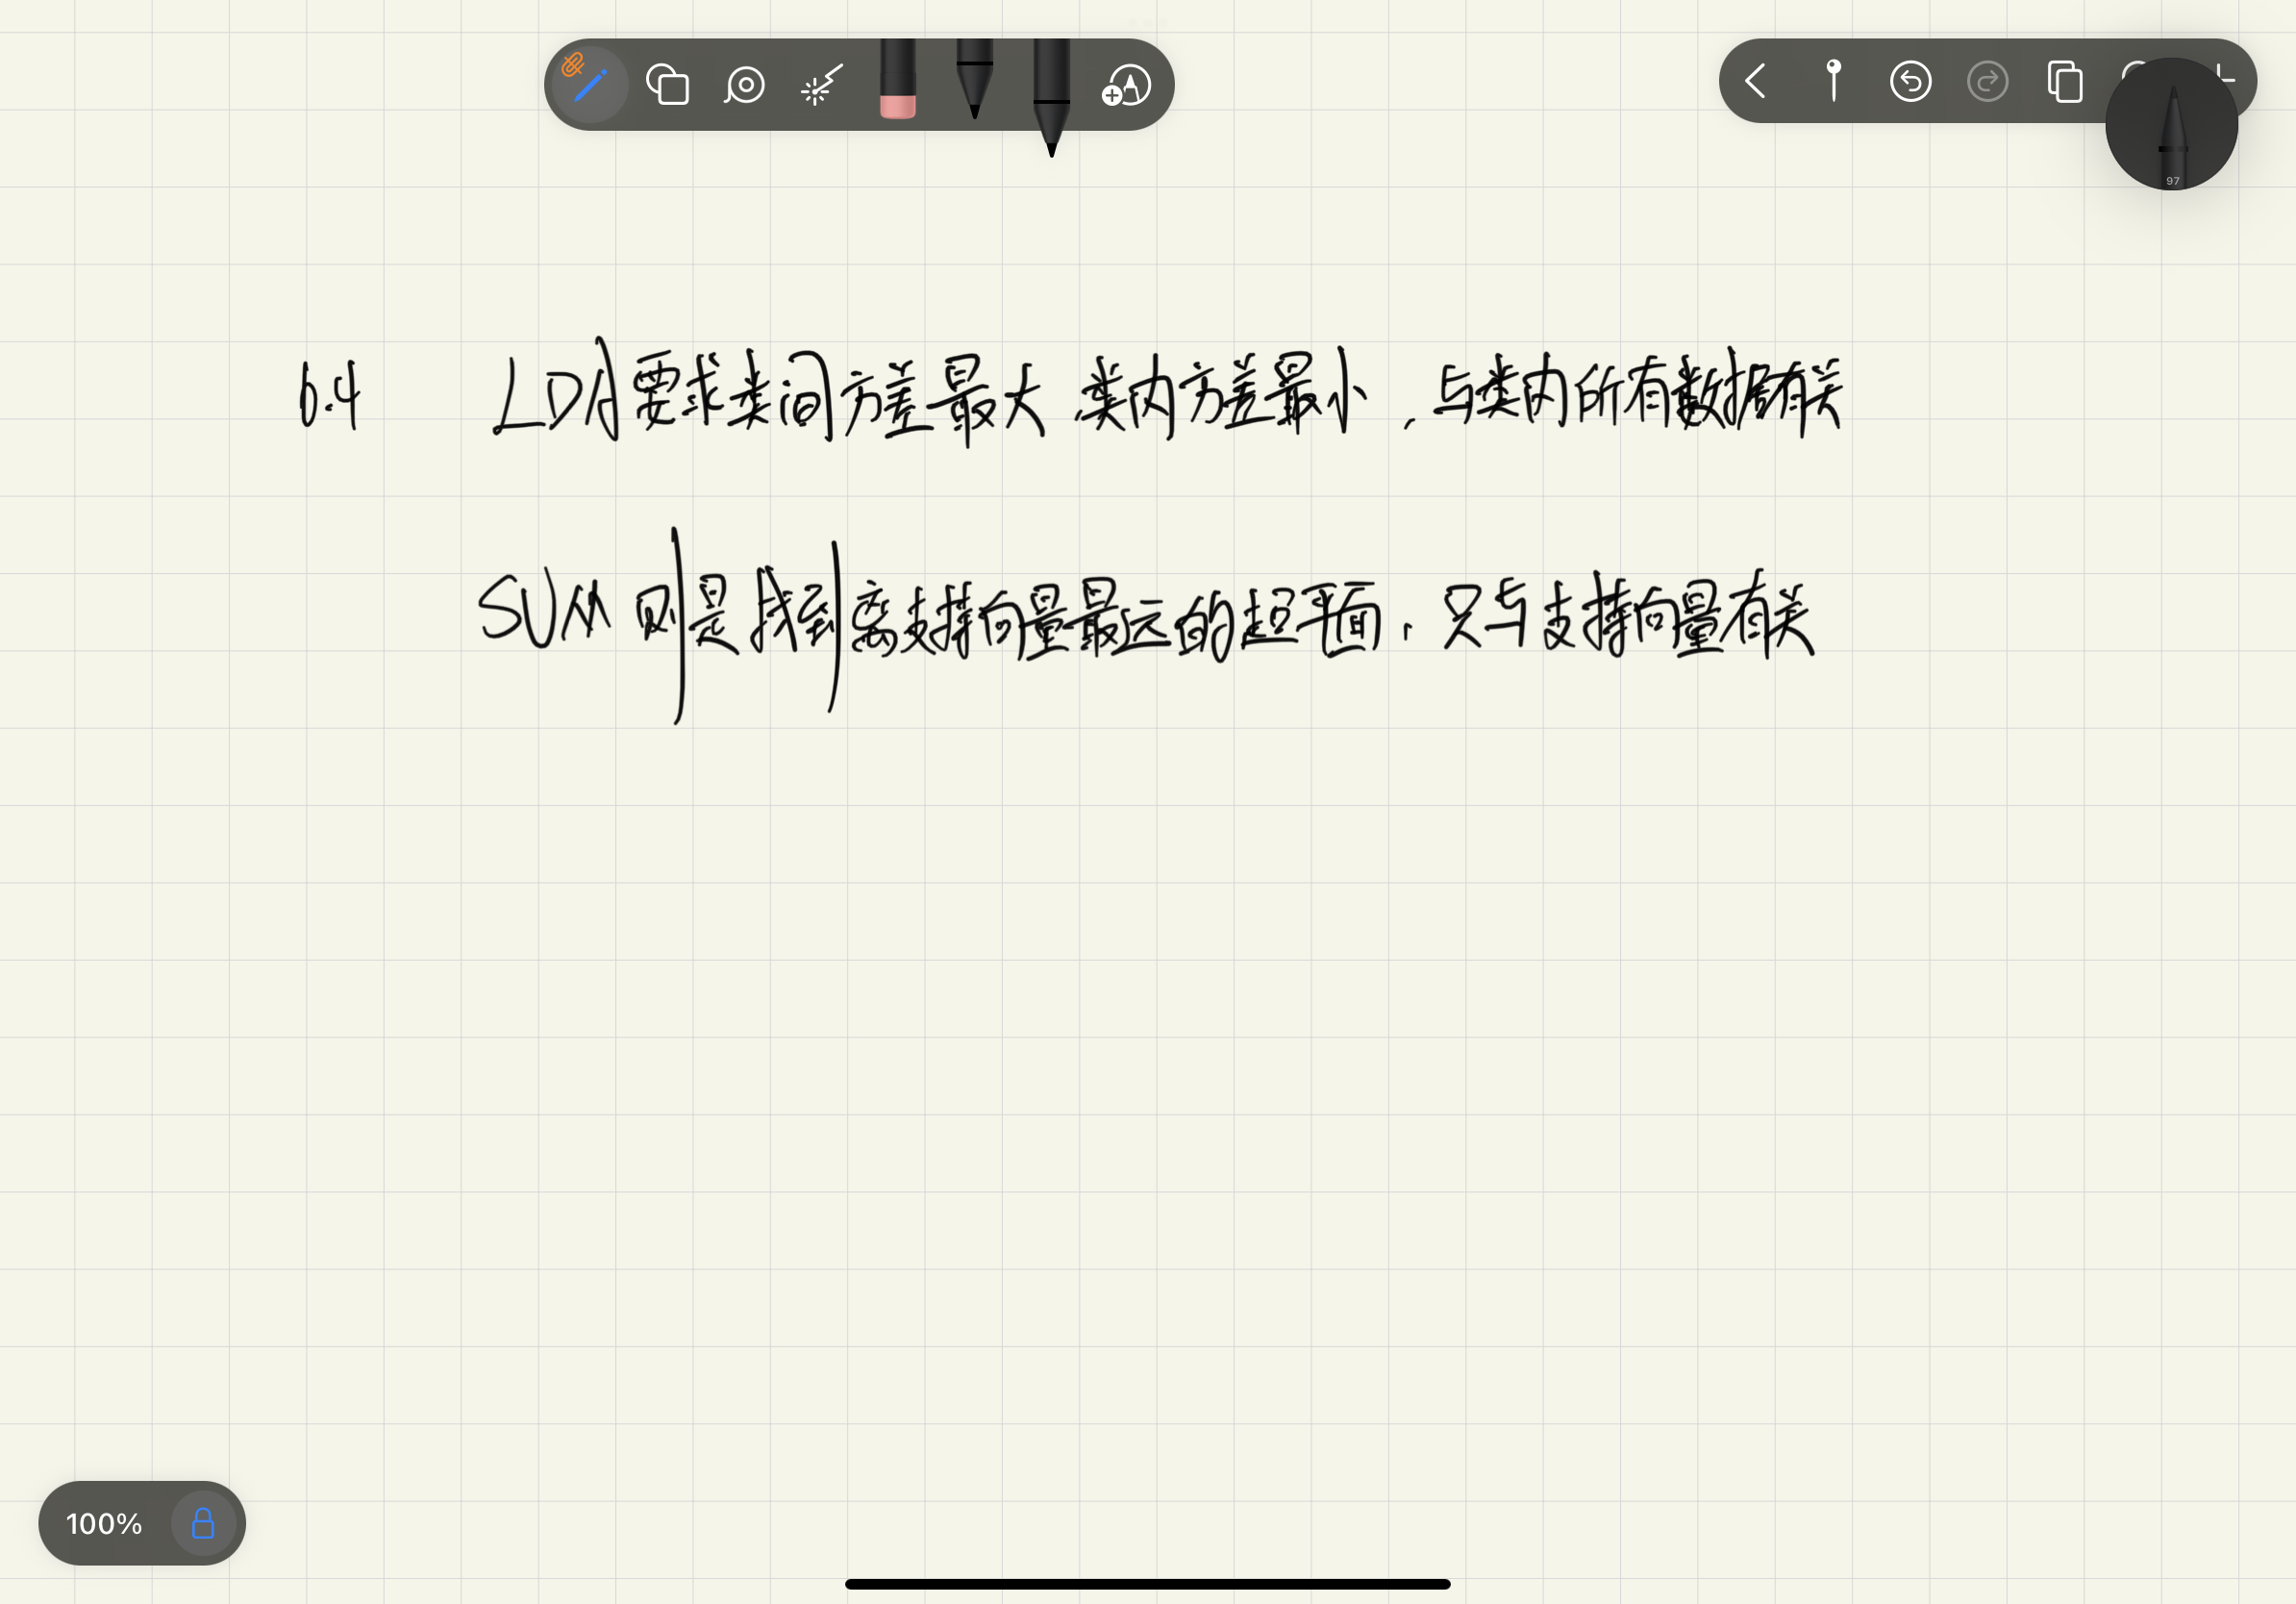 97
6.4 LDA要求类间方差最大 类内方差最小,与类内所有数据有关
SVM则是找到离支持向量最远的超平面,只与支持向量有关
100%